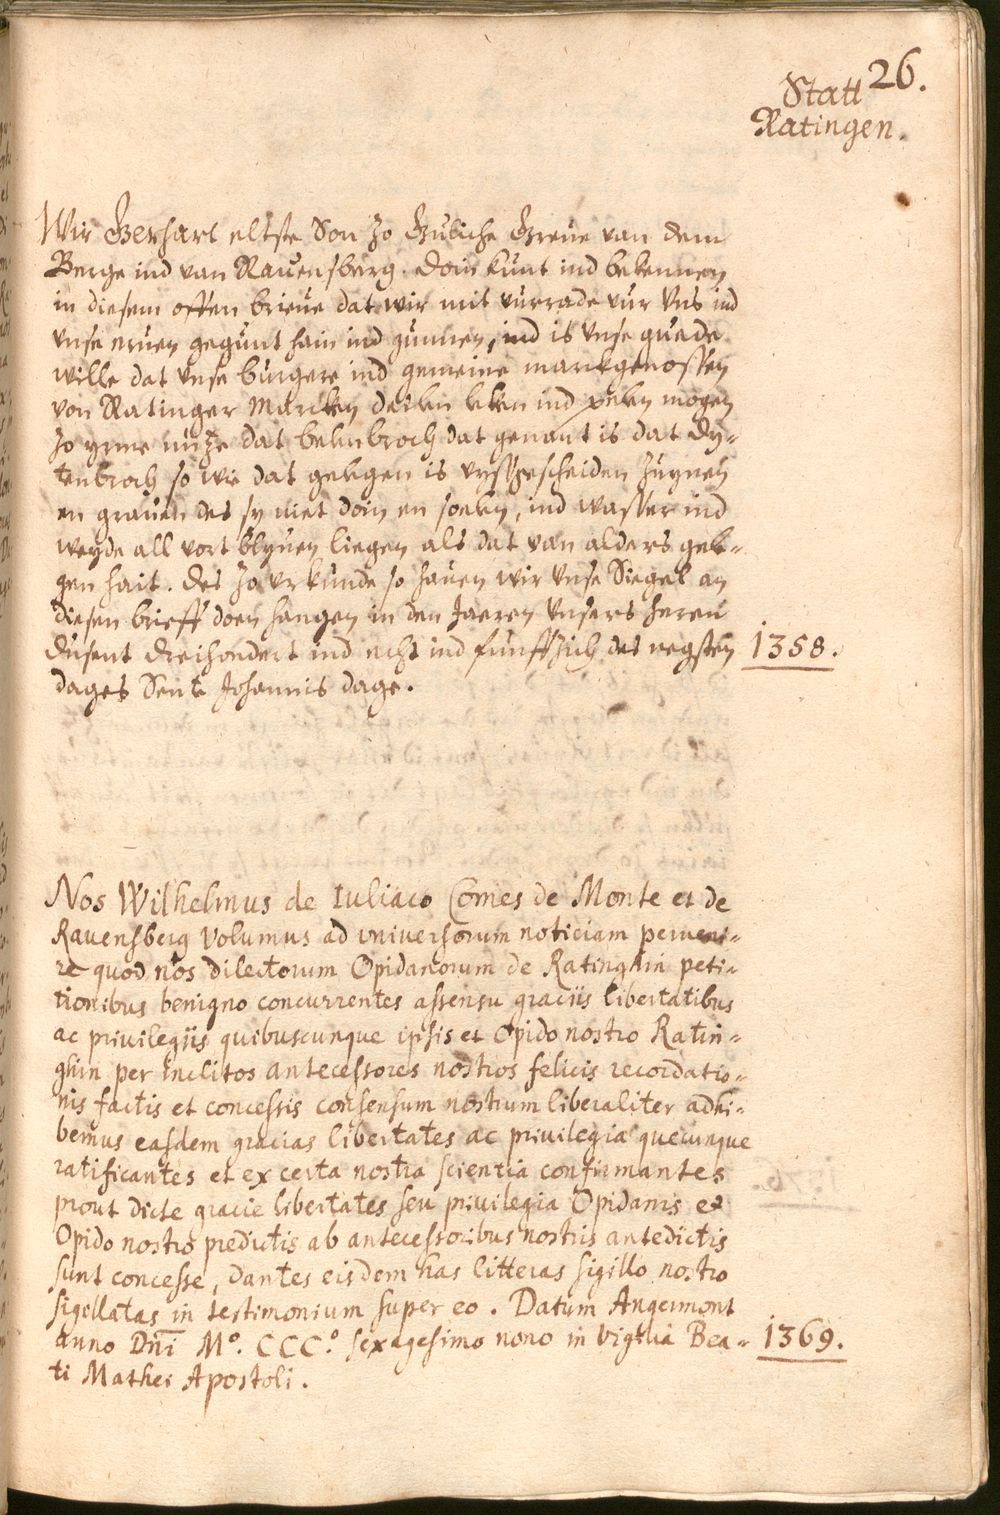 26.
Statt
Ratingen.
Wir Gerhart elste Son zo Guliche Greue van dem
Berge ind van Rauensberg. Doin kunt ind bekennen
in diesem offen brieue dat wir mit vurrade vur Vns ind
Vnse eruen gegunt hain ind gunnen, ind is Vnse guede
wille dat Vnse burgere ind gemeine marckgenossen
von Ratinger Marcken deilen ind mogen
zo yrme nutze dat dat genant is dat Dy-
kenbroch so wie dat gelegen is vyssgescheiden
en grauen des sy niet doin en soelen, ind wasser ind
weyde all vort blyuen liegen als dat van alders gele-
gen hait. Des zo vrkunde so hauen wir Vnse Siegel an
diesen brieff doen hangen in den Jaeren Vnsers heren
dusent dreihondert ind echt ind funffzich des negsten 1358.
dages Sente Johannis dage.
Nos Wilhelmus de Iuliaco Comes de Monte et de
Rauensberg Volumus ad vniuersorum noticiam perueni-
re quod nos dilectorum Opidanorum de Ratinghin peti-
tionibus benigno concurrentes assensu graciis libertatibus
ac privilegiis quibuscunque ipsis et Opido nostro Ratin-
ghin per Inclitos antecessores nostros felicis recordatio-
nis factis et concessis consensum nostrum liberaliter adhi-
bemus easdem gracias libertates ac privilegia quecunque
ratificantes et ex certa nostra scientia confirmantes
prout dicte gracie libertates seu privilegia Opidanis et
Opido nostro predictis ab antecessoribus nostris antedictis
sunt concesse, dantes eisdem has litteras sigillo nostro
sigillatas in testimonium super eo. Datum Angermont
anno Dni Mo. CCCo. sexagesimo nono in vigilia Bea- 1369.
ti Mathei Apostoli.